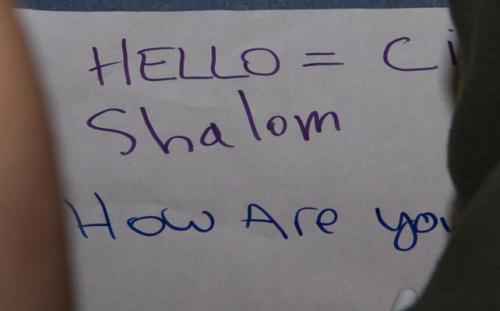 HELLO = Ci
Shalom
How Are you